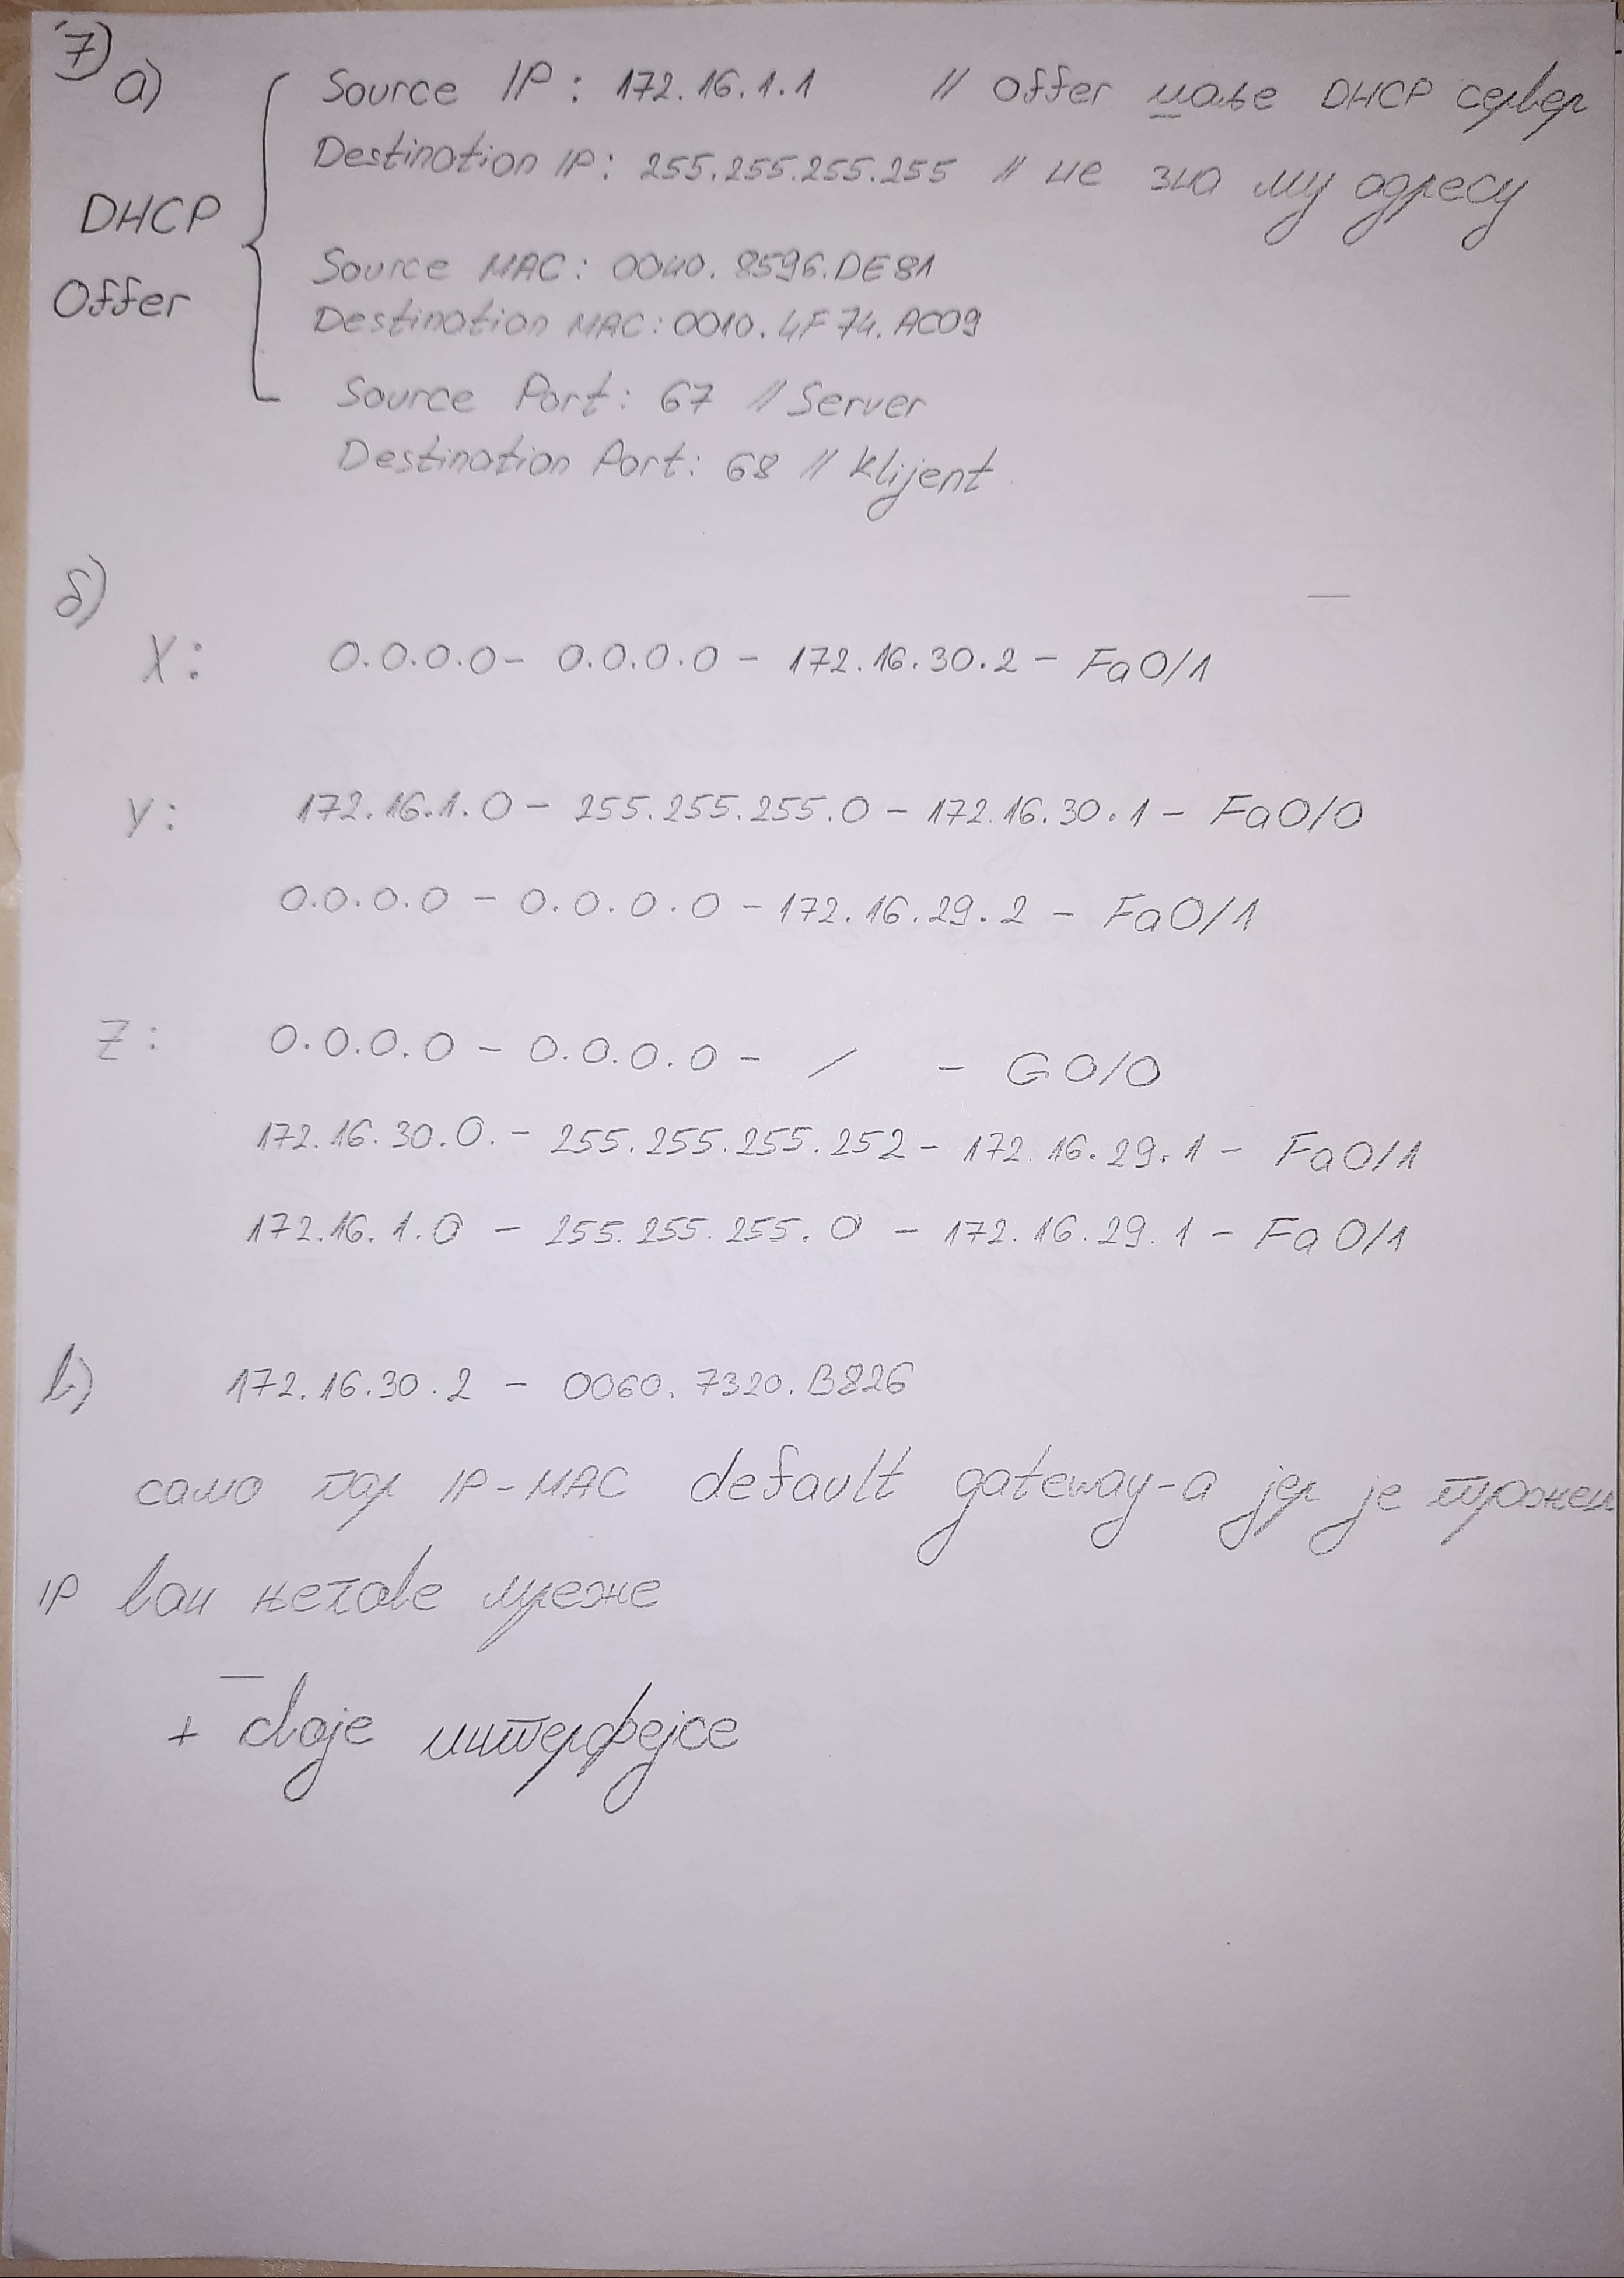 7) а)
Source IP: 172.16.1.1 // Offer шаље DHCP сервер
Destination IP: 255.255.255.255 // не зна му адресу
DHCP
Offer
Source MAC: 0040.8596.DE81
Destination MAC: 0010.4F74.AC09
Source Port: 67 // Server
Destination Port: 68 // Klijent
б)
X: 0.0.0.0 - 0.0.0.0 - 172.16.30.2 - Fa0/1
Y: 172.16.1.0 - 255.255.255.0 - 172.16.30.1 - Fa0/0
0.0.0.0 - 0.0.0.0 - 172.16.29.2 - Fa0/1
Z: 0.0.0.0 - 0.0.0.0 - / - G0/0
172.16.30.0. - 255.255.255.252 - 172.16.29.1 - Fa0/1
172.16.1.0 - 255.255.255.0 - 172.16.29.1 - Fa0/1
в) 172.16.30.2 - 0060.7320.B826
само пар IP-MAC default gateway-a јер је тражен
IP ван његове мреже
+ своје интерфејсе